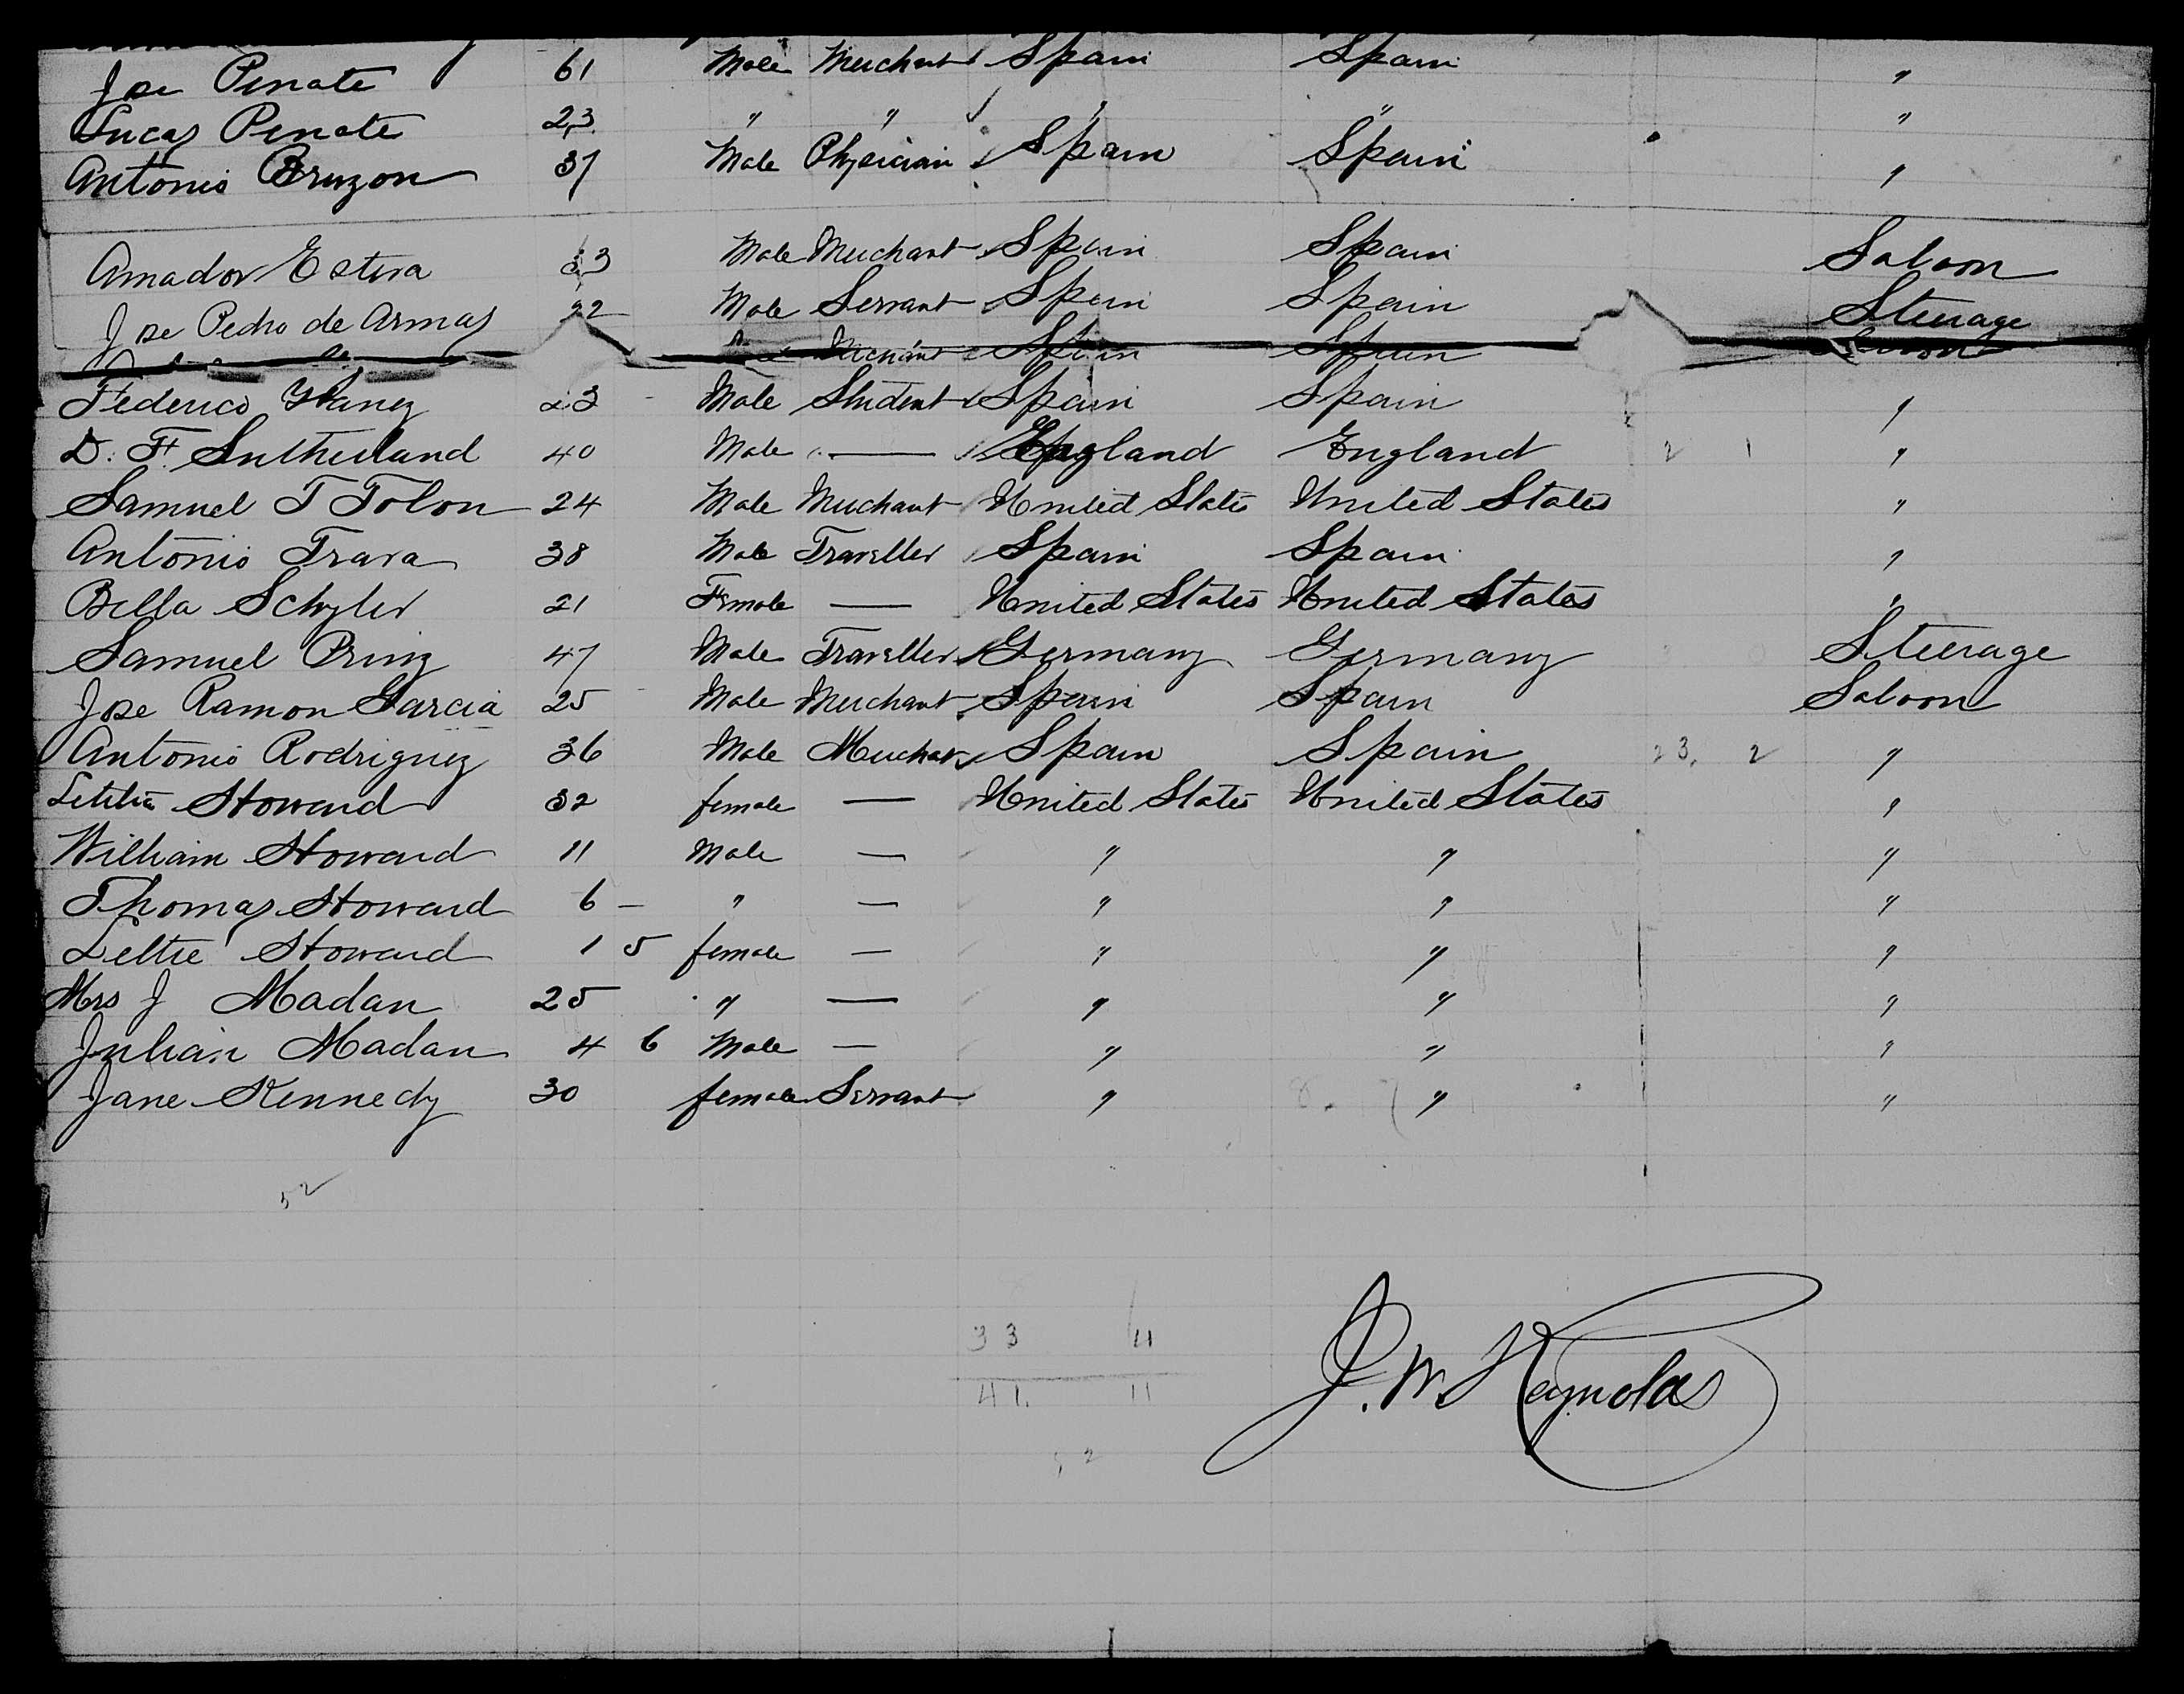 Jose Penate 61 Male Merchant Spain Spain "
Lucas Penate 23 " " " " "
Antonio Bruzon 37 Male Physician Spain Spain "
Amador Estiva 23 Male Merchant Spain Spain Saloon
Jose Pedro de Armas 22 Male Servant Spain Spain Steerage
Merchant Spain Spain Saloon
Federico Yanez 23 Male Student Spain Spain "
D. F. Sutherland 40 Male — England England 2 1 "
Samuel T Tolon 24 Male Merchant United States United States "
Antonio Trava 38 Male Traveller Spain Spain "
Bella Schyler 21 Female — United States United States "
Samuel Prinz 47 Male Traveller Germany Germany Steerage
Jose Ramon Garcia 25 Male Merchant Spain Spain Saloon
Antonio Rodriguez 36 Male Merchant Spain Spain 23. 2 "
Letitia Howard 32 female — United States United States "
William Howard 11 Male — " " "
Thomas Howard 6 — " — " " "
Lettie Howard 1 5 female — " " "
Mrs J Madan 25 " — " " "
Julian Madan 4 6 Male — " " "
Jane Kennedy 30 female Servant " " "
52
33 11
41. 11
52
J. W. Reynolds